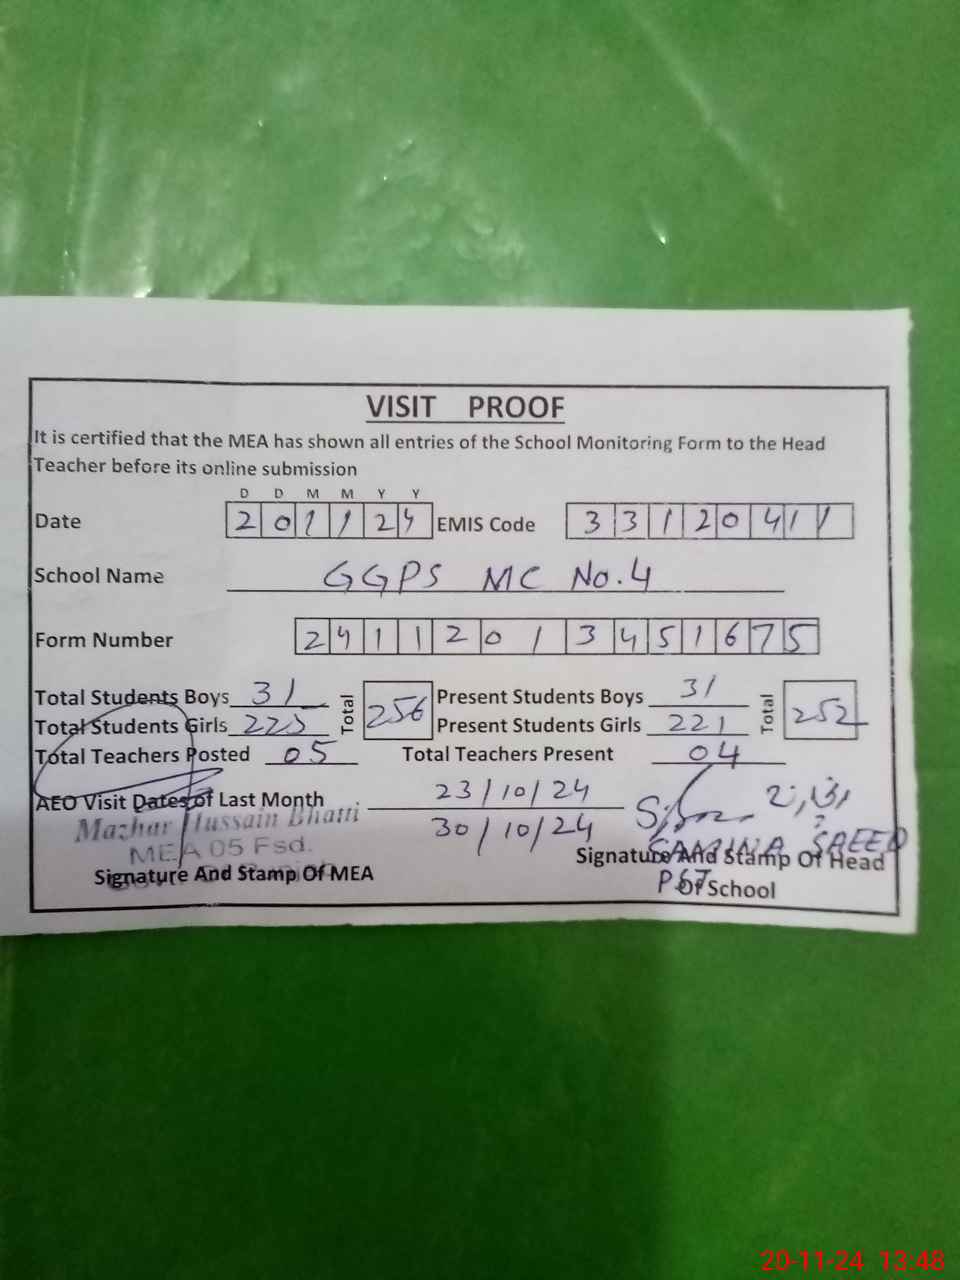 VISIT PROOF
It is certified that the MEA has shown all entries of the School Monitoring Form to the Head
Teacher before its online submission
D D M M Y Y
Date 20 11 24 EMIS Code 33120411
School Name GGPS MC No.4
Form Number 2411201 3451675
Total Students Boys 31 Total 256 Present Students Boys 31 Total 252
Total Students Girls 225 Present Students Girls 221
Total Teachers Posted 05 Total Teachers Present 04
AEO Visit Dates of Last Month 23/10/24
30/10/24
Mazhar Hussain Bhatti
MEA 05 Fsd.
Signature And Stamp Of MEA
SAEED
Signature And Stamp Of Head
PST
Of School
20-11-24 13:48